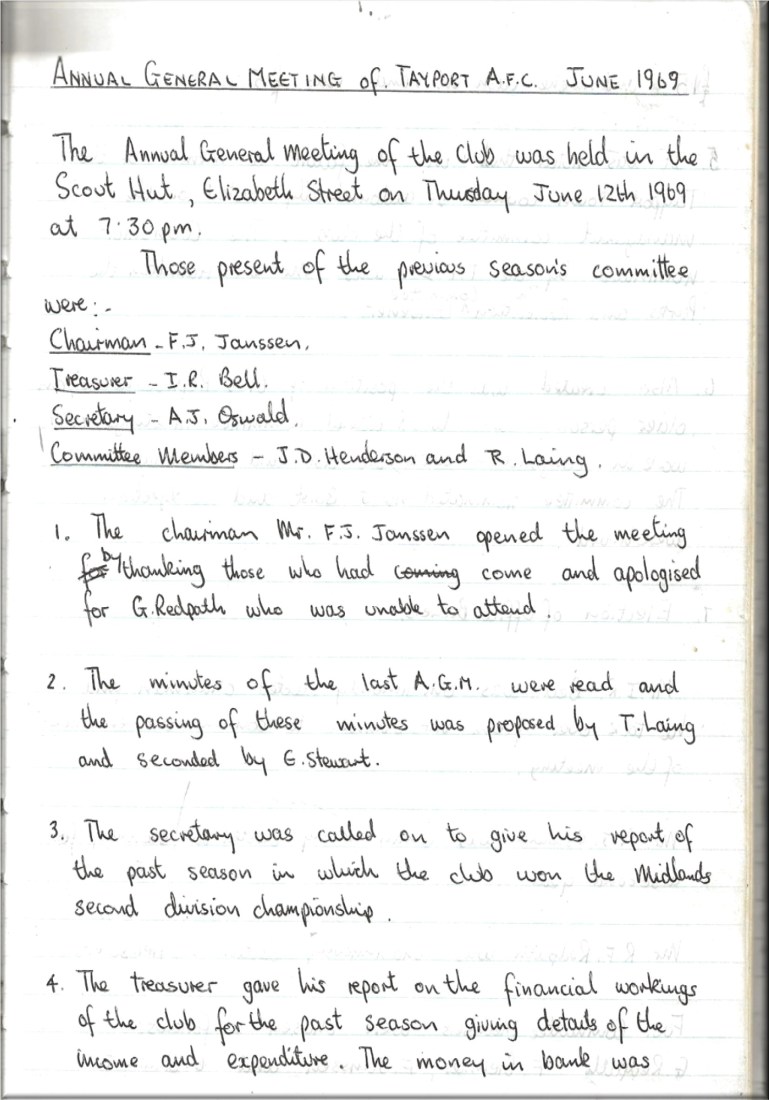 1.
ANNUAL GENERAL MEETING of. TAYPORT A.F.C. JUNE 1969
The Annual General Meeting of the Club was held in the
Scout Hut, Elizabeth Street on Thursday June 12th 1969
at 7.30 pm.
Those present of the previous season's committee
were:-
Chairman - F.J. Janssen.
Treasurer - I.R. Bell.
Secretary - A.J. Oswald.
Committee Members - J.D. Henderson and R. Laing.
1. The chairman Mr. F.J. Janssen opened the meeting
for by thanking those who had coming come and apologised
for G. Redpath who was unable to attend.
2. The minutes of the last A.G.M. were read and
the passing of these minutes was proposed by T. Laing
and seconded by G. Stewart.
3. The secretary was called on to give his report of
the past season in which the club won the Midlands
second division championship.
4. The treasurer gave his report on the financial workings
of the club for the past season giving details of the
income and expenditure. The money in bank was